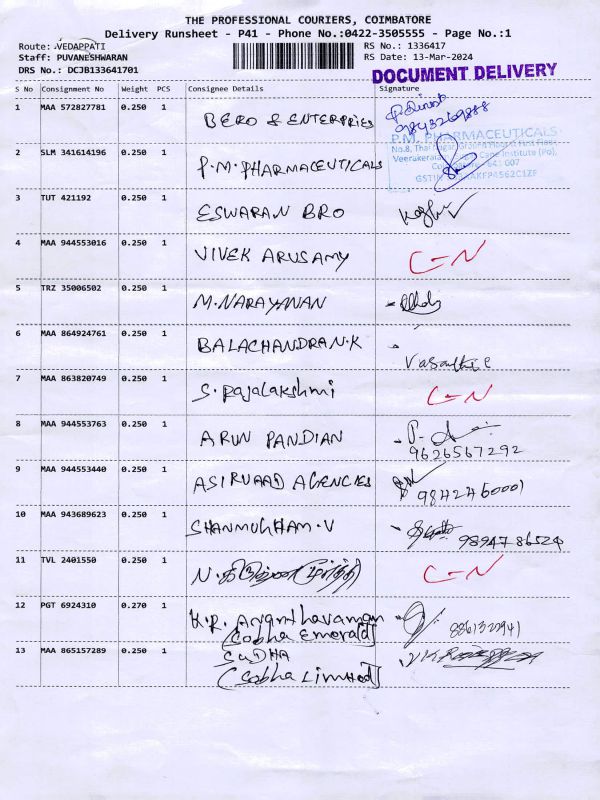 THE PROFESSIONAL COURIERS, COIMBATORE
Delivery Runsheet - P41 - Phone No.:0422-3505555 - Page No.:1
Route: VEDAPPATI RS No.: 1336417
Staff: PUVANESHWARAN RS Date: 13-Mar-2024
DRS No.: DCJB133641701 DOCUMENT DELIVERY
S No Consignment No Weight PCS Consignee Details Signature
1 MAA 572827781 0.250 1 BERO & ENTERPRIES
9843269888
P.M. PHARMACEUTICALS
2 SLM 341614196 0.250 1 P.M. PHARMACEUTICALS
3 TUT 421192 0.250 1 ESWARAN BRO
4 MAA 944553016 0.250 1 VIVEK ARUSAMY C-N
5 TRZ 35006502 0.250 1 M.NARAYANAN
6 MAA 864924761 0.250 1 BALACHANDRAN.K
7 MAA 863820749 0.250 1 S. Rajalakshmi C-N
8 MAA 944553763 0.250 1 ARUN PANDIAN
9626567292
9 MAA 944553440 0.250 1 ASIRVAAD AGENCIES
10 MAA 943689623 0.250 1 SHANMUGHAM.V
11 TVL 2401550 0.250 1 N. C-N
12 PGT 6924310 0.270 1 K.R. Anantharaman
(Sobha Emerald)
13 MAA 865157289 0.250 1 SUDHA
(Sobha Limited)